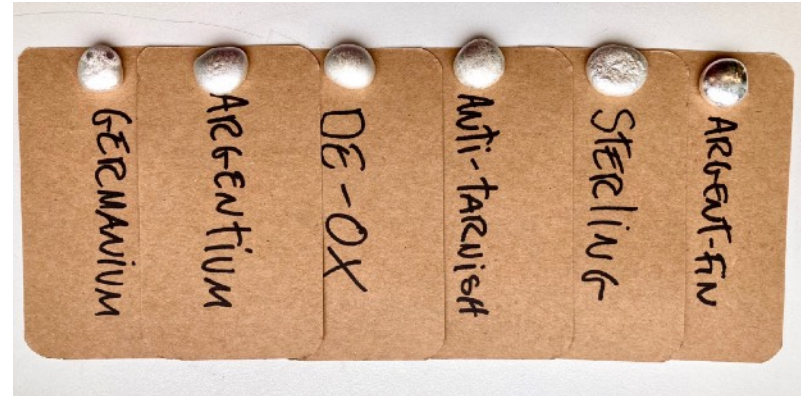 GERMANIUM
ARGENTIUM
DE-OX
ANTI-TARNISH
STERLING
ARGENT-FIN